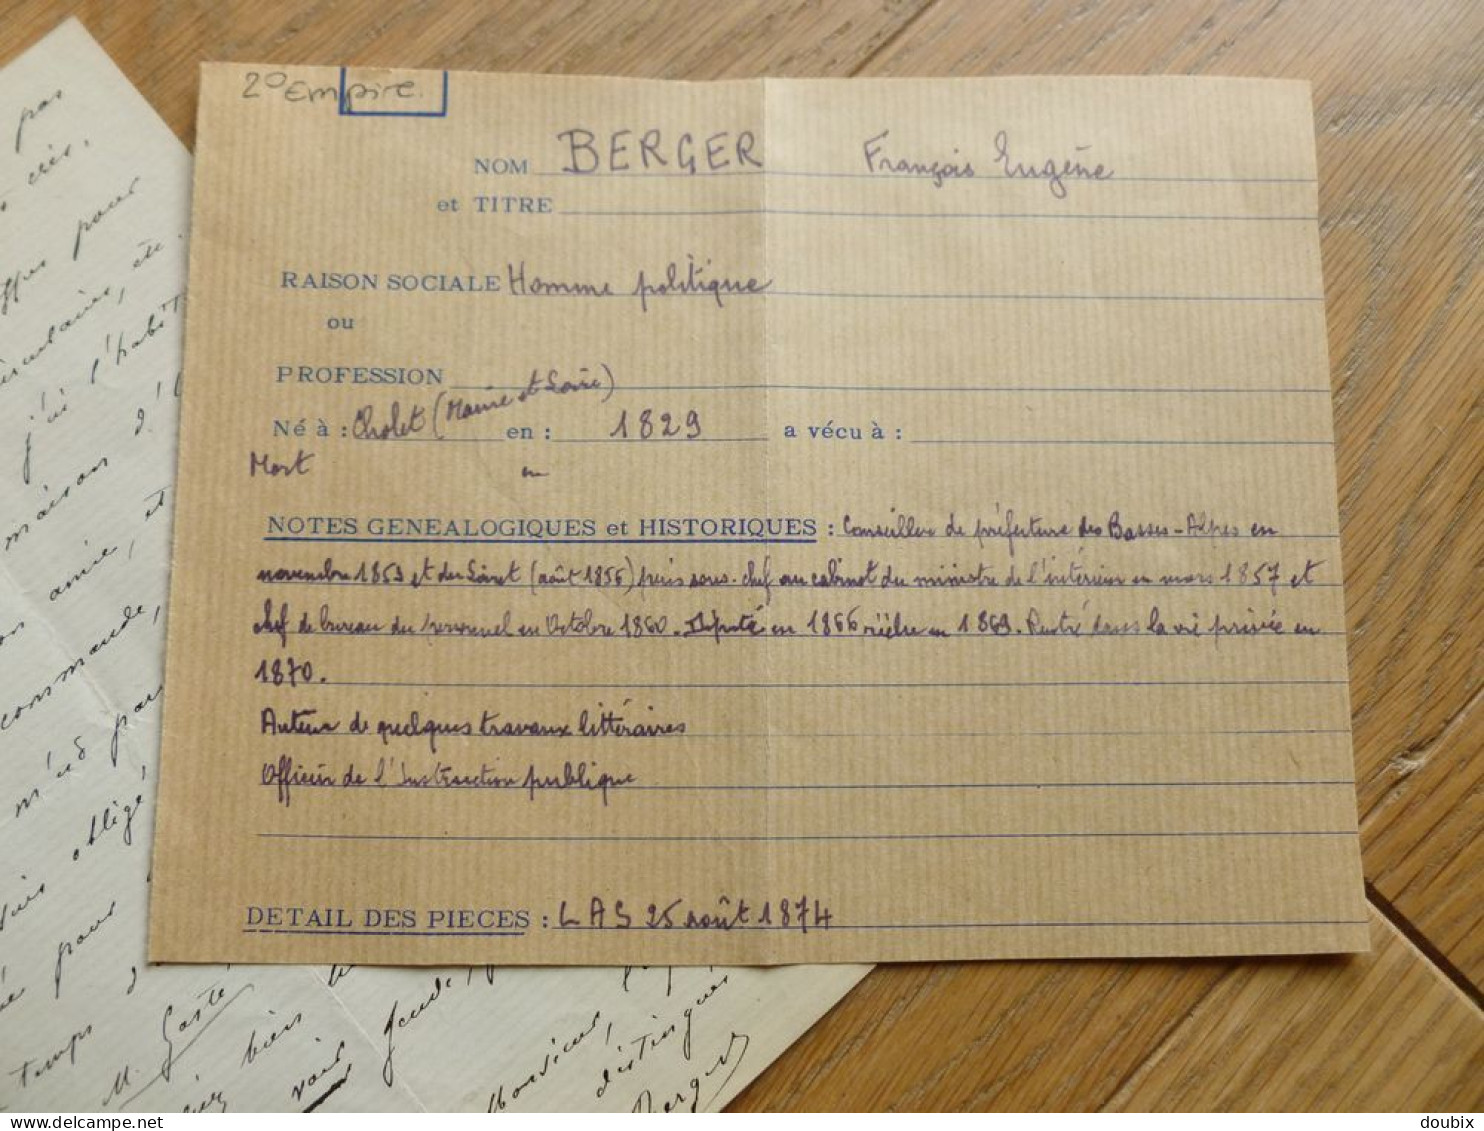 2º Empire.
NOM BERGER François Eugène
et TITRE
RAISON SOCIALE Homme politique
ou
PROFESSION
Né à : Cholet (Maine et Loire) en : 1829 a vécu à :
Mort en
NOTES GENEALOGIQUES et HISTORIQUES : Conseiller de préfecture des Basses-Alpes en
novembre 1853 et du Loiret (août 1856) puis sous-chef au cabinet du ministre de l'intérieur en mars 1857 et
chef de bureau du personnel en Octobre 1860. Député en 1866 réélu en 1869. Rentré dans la vie privée en
1870.
Auteur de quelques travaux littéraires
Officier de l'Instruction publique
DETAIL DES PIECES : LAS 25 août 1874
pas
pour
j'ai l'habit
maison d'
amie, et
commande,
m'est pas
obligé
pour
temps d'
M. Gasté
bien
voir
Monsieur,
distingués
Berger
delcampe.net
doubix